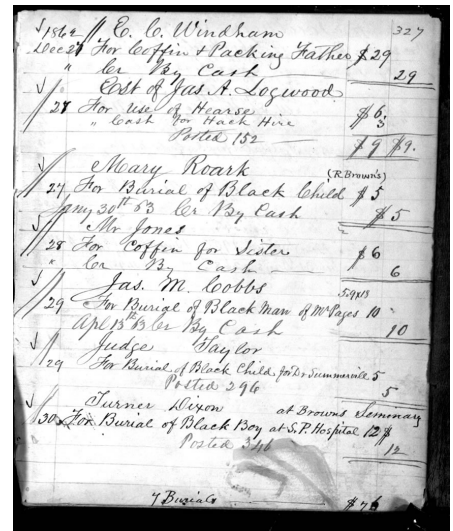 1862 E. C. Windham 327
Dec 27 For Coffin & Packing Father $29
" Cr By Cash 29
Est of Jas A. Logwood
27 For use of Hearse $6.
" Cash for Hack Hire 3
Posted 152 $9 $9.
Mary Roark (R. Brown's)
27 For Burial of Black Child $5
Jany 30th 63 Cr By Cash $5
Mr Jones
28 For Coffin for Sister $6
" Cr By Cash 6
Jas. M. Cobbs 5.9x18
29 For Burial of Black Man of Mr Pages 10 "
Apl 13th 63 Cr By Cash 10
Judge Taylor
29 For Burial of Black Child for Dr. Summerville 5
Posted 296 5
Turner Dixon at Browns Seminary
30 For Burial of Black Boy at S.P. Hospital 12 $
Posted 346 12
7 Burials $76